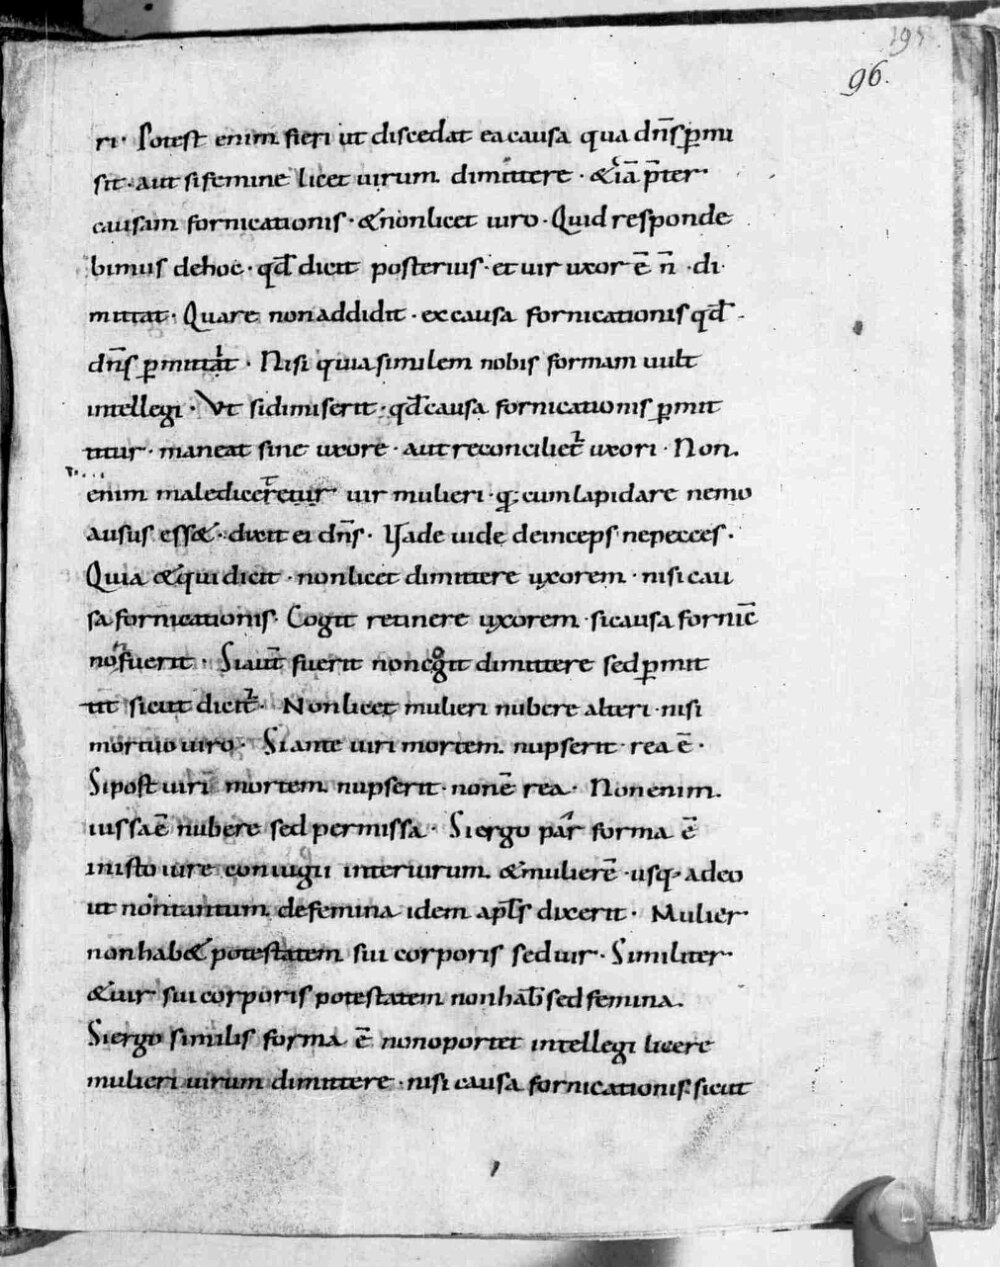 195
96.
ri· Potest enim fieri ut discedat ea causa qua dn̄s p̄mi
sit· aut si femine licet uirum dimittere · &iā p̄ter
causam fornicationis · & non licet uiro · Quid responde
bimus de hoc · qđ dicit posterius · et uir uxorē n̄ · di
mittat · Quare non addidit · ex causa fornicationis qđ
dn̄s p̄mittat · Nisi quia similem nobis formam uult
intellegi · Vt si dimiserit · qđ causa fornicationis p̄mit
titur · maneat sine uxore · aut reconciliet᷑ uxori · Non
enim malediceretur uir mulieri · q; cum lapidare nemo
ausus ess& · dixit ei dn̄s · Uade uide deinceps ne pecces ·
Quia & qui dicit · non licet dimittere uxorem · nisi cau
sa fornicationis · Cogit retinere uxorem · si causa fornic̄
no fuerit · Si aut̄ fuerit non cogit dimittere sed p̄mit
tit sicut dicit᷑ · Non licet mulieri nubere alteri · nisi
mortuo uiro · Si ante uiri mortem nupserit · rea ē ·
Si post uiri mortem nupserit · non ē rea · Non enim
iussa ē nubere sed permissa · Si ergo par forma ē
in isto iure coniugii inter uirum & mulierē · usq· adeo
ut non tantum de femina idem apl̄s dixerit · Mulier
non hab& potestatem sui corporis sed uir · Similiter
& uir sui corporis potestatem non hab̄ sed femina.
Si ergo similis forma ē non oportet intellegi licere
mulieri uirum dimittere · nisi causa fornicationis · sicut